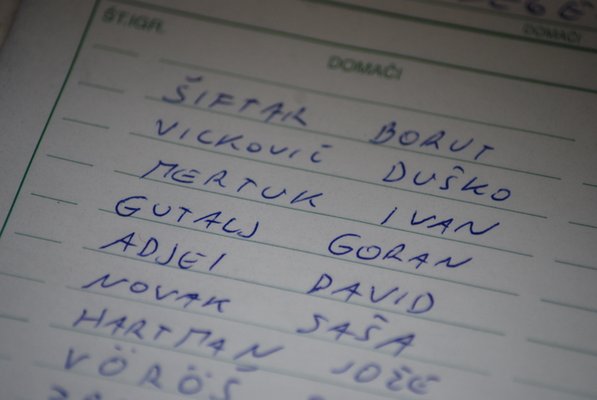 ŠT.IGR. DOMAČI DOMAČI
ŠIFTAR BORUT
VICKOVIČ DUŠKO
MERTUK IVAN
GUTALJ GORAN
ADJEI DAVID
NOVAK SAŠA
HARTMAN JOŽE
VÖRÖŠ